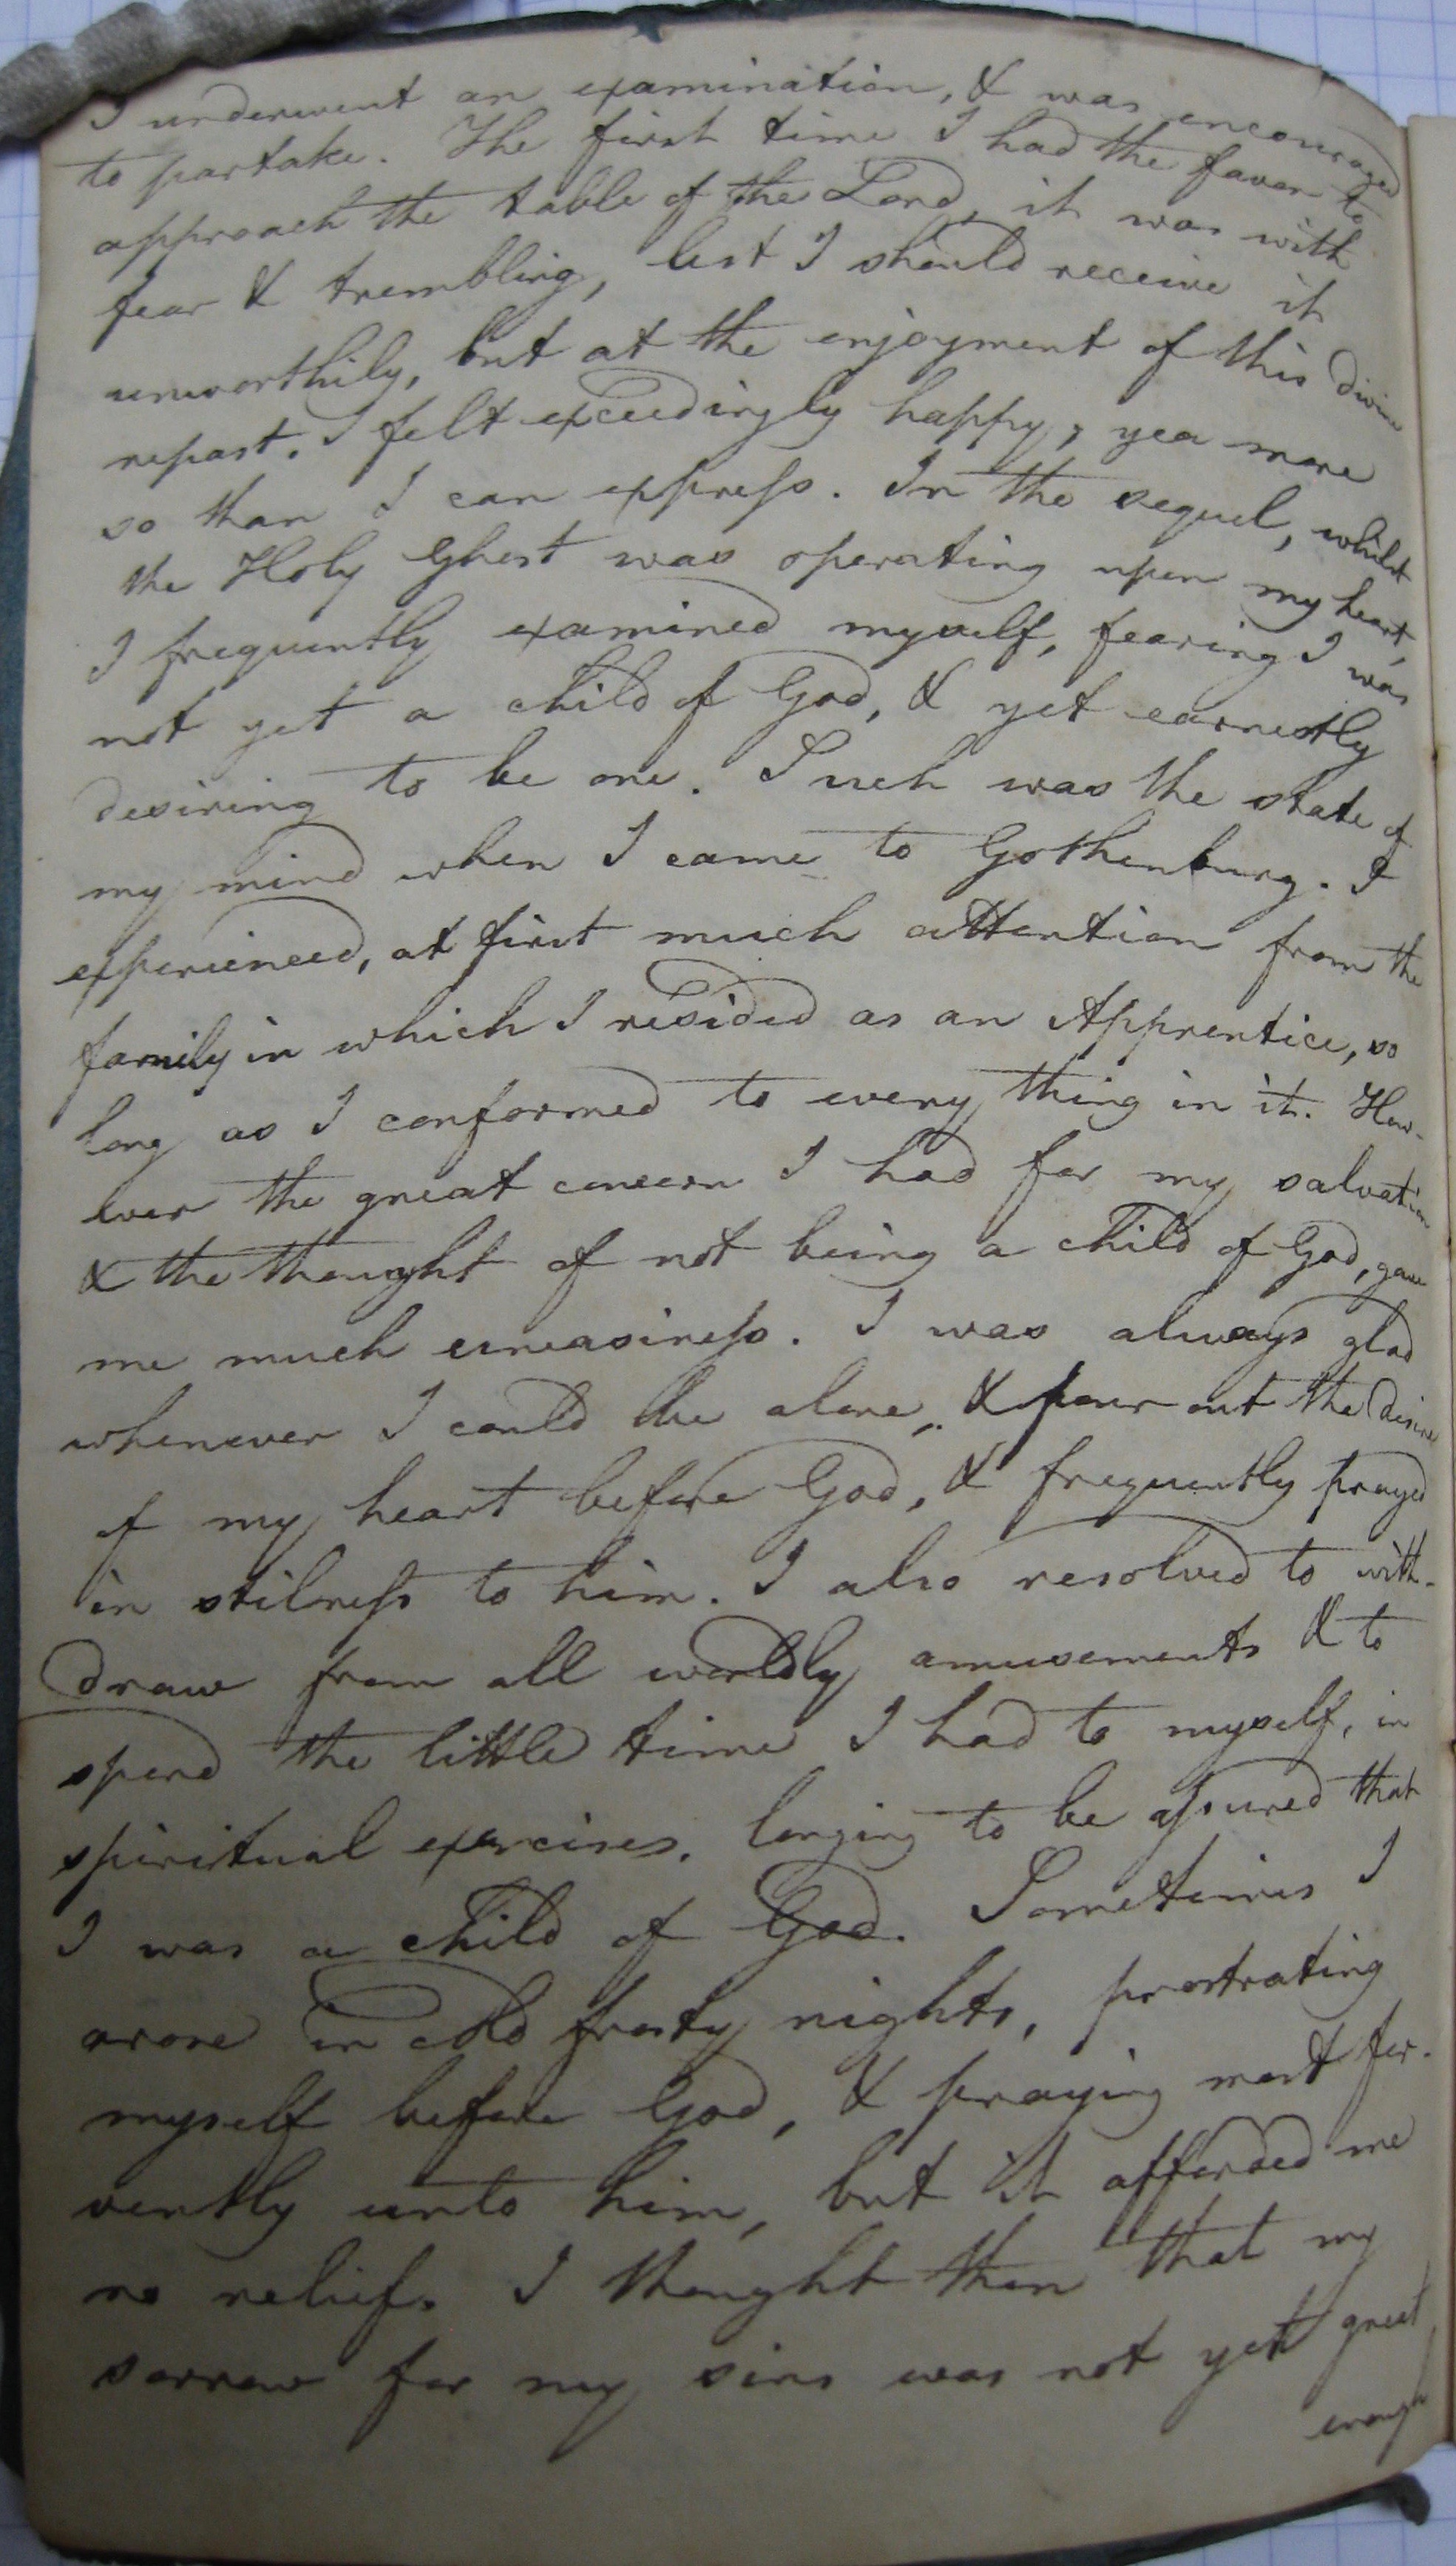 I underwent an examination, & was encouraged
to partake. The first time I had the favor to
approach the table of the Lord, it was with
fear & trembling, lest I should receive it
unworthily, but at the enjoyment of this divine
repast. I felt exceedingly happy, yea more
so than I can express. In the sequel, whilst
the Holy Ghost was operating upon my heart,
I frequently examined myself, fearing I was
not yet a child of God, & yet earnestly
desiring to be one. Such was the state of
my mind when I came to Gothenburg. I
experienced, at first much attention from the
family in which I resided as an Apprentice, so
long as I conformed to every thing in it. How-
ever the great concern I had for my salvation
& the thought of not being a child of God, gave
me much uneasiness. I was always glad
whenever I could be alone, & pour out the desire
of my heart before God, & frequently prayed
in stilness to him. I also resolved to with-
draw from all worldly amusements & to
spend the little time I had to myself, in
spiritual exercises. longing to be assured that
I was a child of God. Sometimes I
arose in cold frosty nights, prostrating
myself before God, & praying most fer-
vently unto him, but it afforded me
no relief. I thought then that my
sorrow for my sins was not yet great
enough